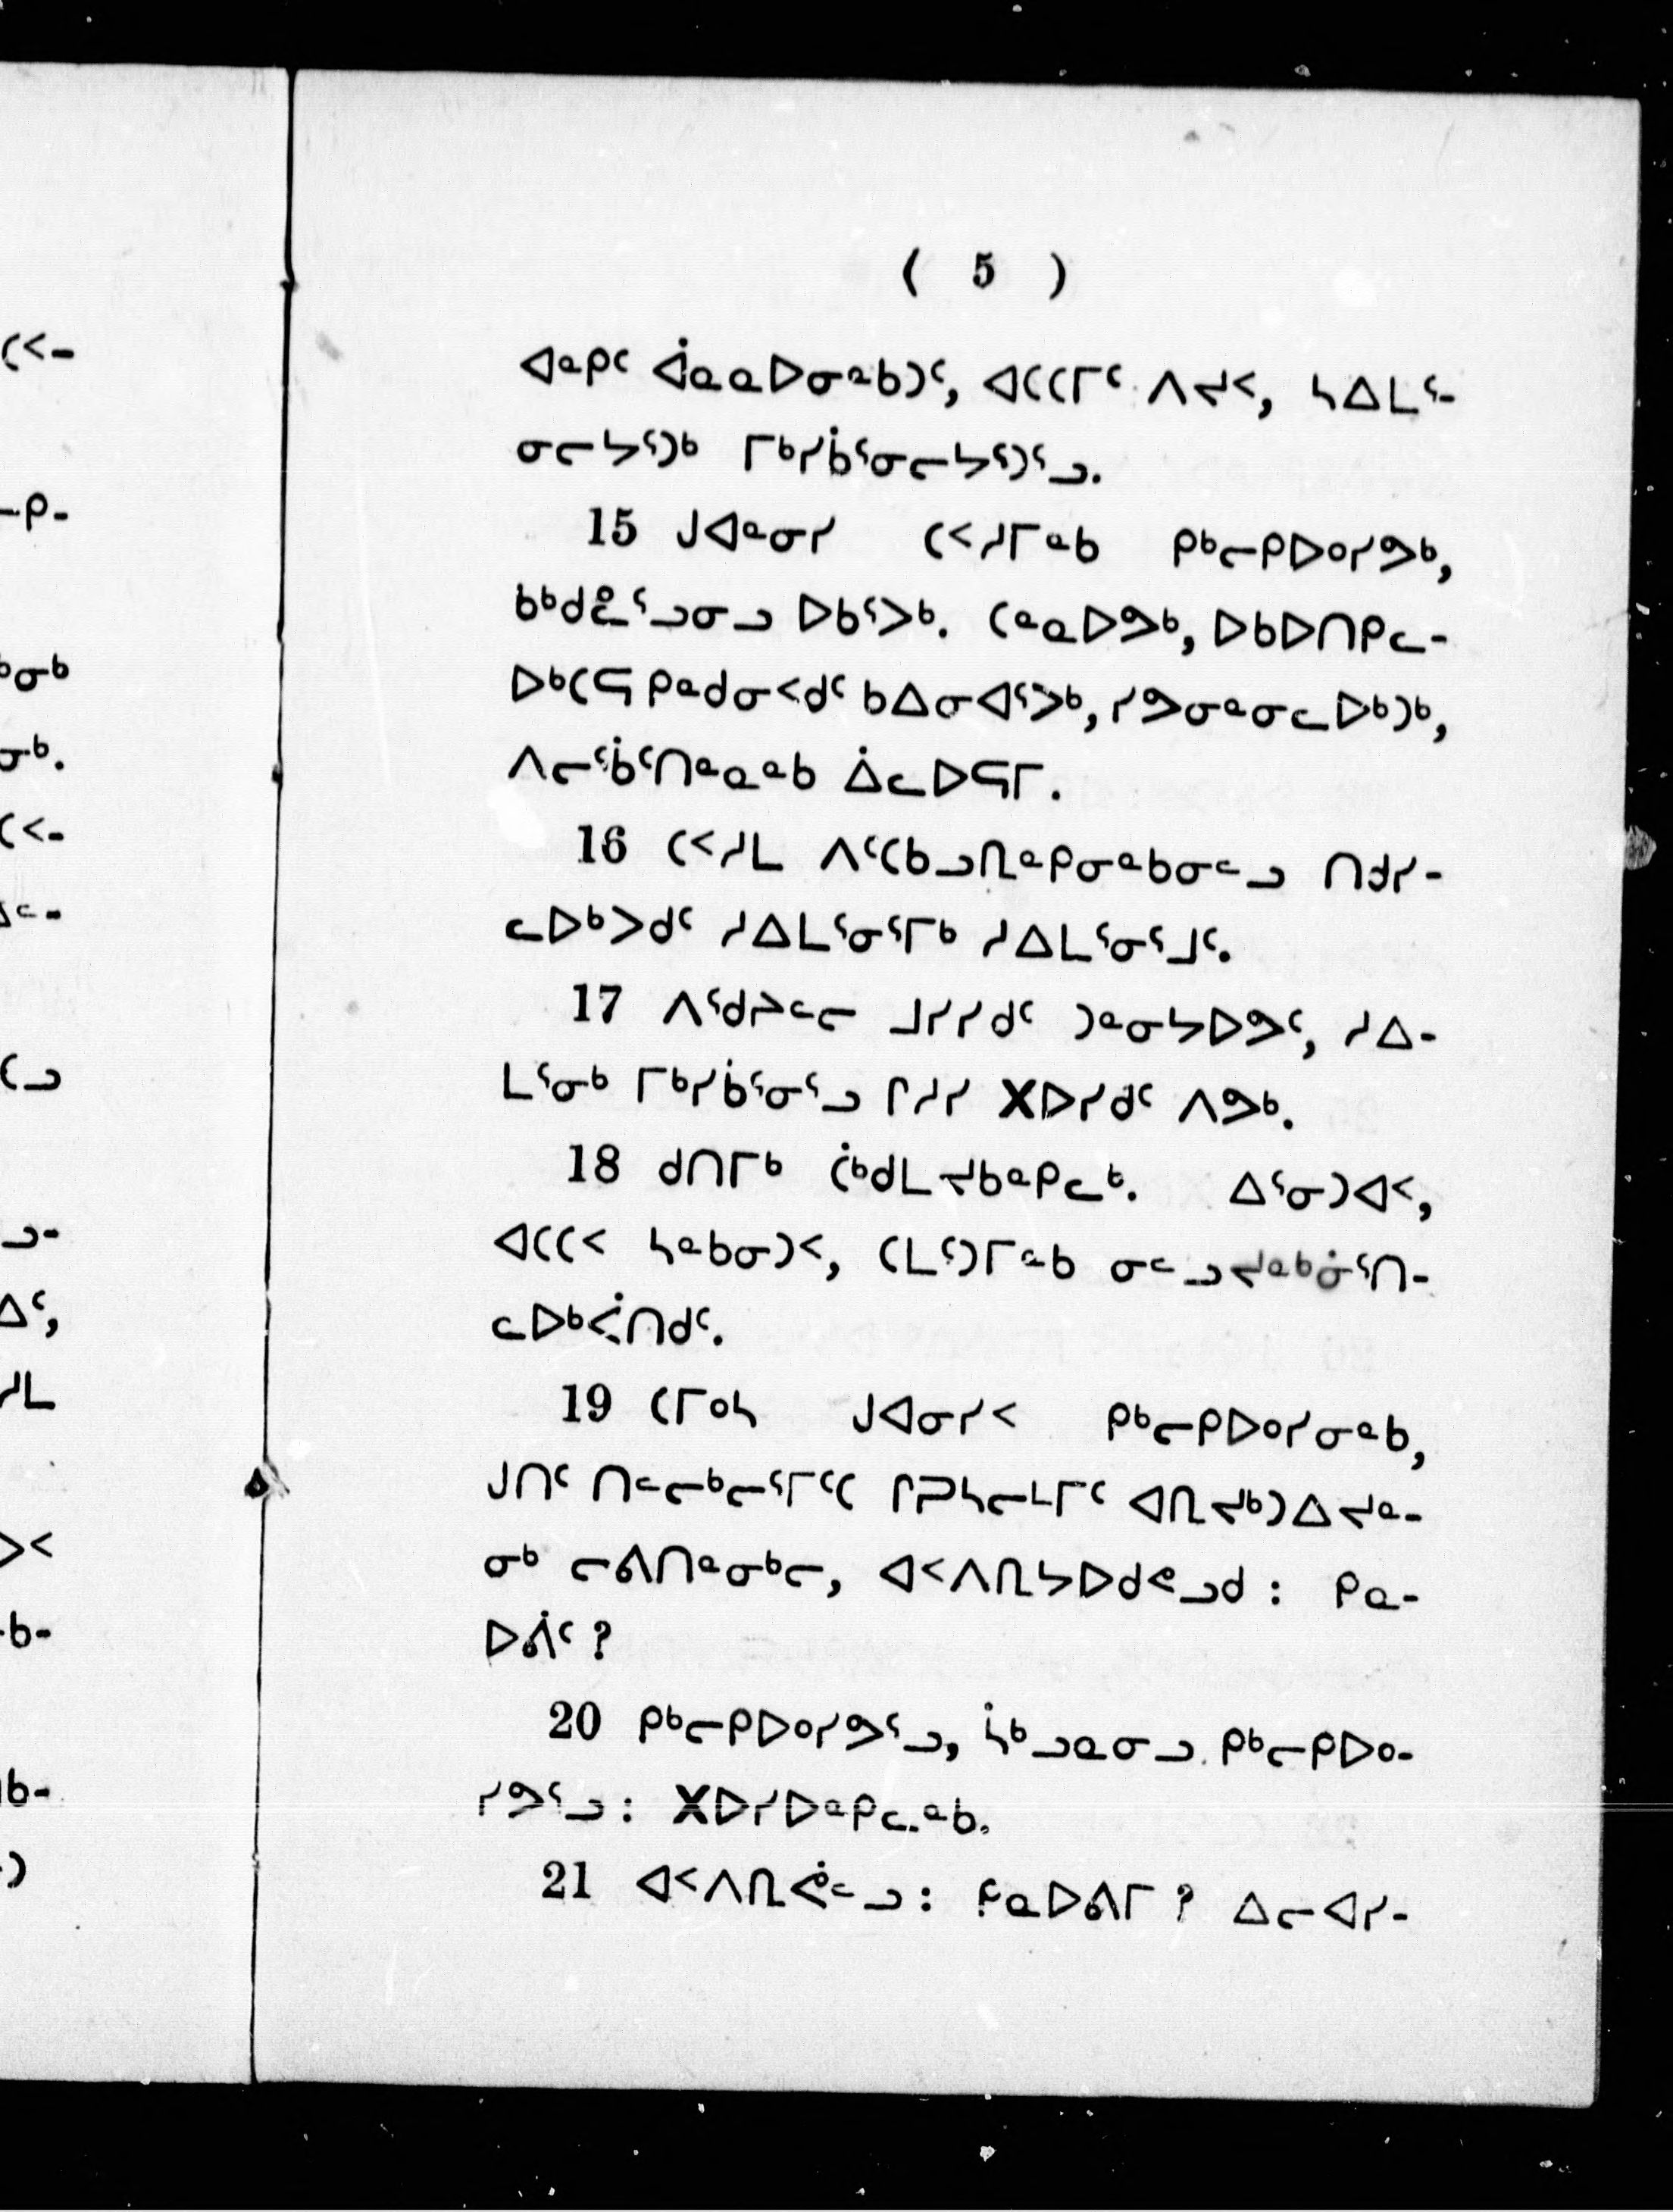 ( 5 )
ᐊᓐᑭᑦ ᐋᓇᓇᐅᓂᓐᑲᑐᑦ, ᐊᑕᑕᒥᑦ ᐱᔪᑉ, ᓴᐃᒪᕐ-
ᓂᓕᔭᕐᑐᒃ ᒥᒃᓯᑳᕐᓂᓕᔭᕐᑐᕐᓗ.
15 ᒍᐊᓐᓂᓯ ᑕᑉᓱᒥᓐᑲ ᑭᒃᓕᑭᐅᐤᓯᕗᒃ,
ᑲᒃᑯᓛᕐᓗᓂᓗ ᐅᑲᕐᐳᒃ. ᑕᓐᓇᐅᕗᒃ, ᐅᑲᐅᑎᑭᓚ-
ᐅᒃᑕᕋ ᑭᓐᑯᓂᑉᑯᑦ ᑲᐃᓂᐊᕐᐳᒃ, ᓯᕗᓂᓐᓂᓚᐅᒃᑐᒃ,
ᐱᓕᕐᑳᑦᑎᓐᓇᓐᑲ ᐄᓚᐅᕋᒥ.
16 ᑕᑉᓱᒪ ᐱᑦᑕᑲᓗᕆᓐᑭᓂᓐᑲᓂᓪᓗ ᑎᑯᓯ-
ᓚᐅᒃᐳᑯᑦ ᓱᐃᒪᕐᓂᕐᒥᒃ ᓱᐃᒪᕐᓂᕐᒧᑦ.
17 ᐱᕐᑯᔨᓪᓕ ᒧᓯᓯᑯᑦ ᑐᓐᓂᔭᐅᕗᑦ, ᓱᐃ-
ᒪᕐᓂᒃ ᒥᒃᓯᑳᕐᓂᕐᓗ ᒋᓱᓯ ᕽᐅᓯᑯᑦ ᐱᕗᒃ.
18 ᑯᑎᒥᒃ ᑖᒃᑯᒪᔪᑲᓐᑭᓚᒃ. ᐃᕐᓂᑐᐊᑉ,
ᐊᑕᑕᑉ ᓴᓐᑲᓂᑐᑉ, ᑕᒪᑦᑐᒥᓐᑲ ᓂᓪᓗᔪᓐᑲᓃᕐᑎ-
ᓚᐅᒃᐹᑎᑯᑦ.
19 ᑕᒥᐤᓴ ᒍᐊᓂᓯᑉ ᑭᒃᓕᑭᐅᐤᓯᓂᓐᑲ,
ᒍᑎᑦ ᑎᓪᓕᒃᓕᕐᒥᑦᑕ ᒋᕈᓴᓕᒻᒥᑦ ᐊᕆᔪᒃᑐᐃᔪᓐ-
ᓂᒃ ᓕᕕᑎᓐᓂᒃᓕ, ᐊᑉᐱᕆᔭᐅᑯᕝᓗᑯ : ᑭᓇ-
ᐅᕖᑦ ?
20 ᑭᒃᓕᑭᐅᐤᓯᕗᕐᓗ, ᓵᒃᓗᓇᓂᓗ. ᑭᒃᓕᑭᐅᐤ-
ᓯᕗᕐᓗ : ᕽᐅᓯᐅᓐᑭᓚᓐᑲ.
21 ᐊᑉᐱᕆᕚᓪᓗ : ᑭᓇᐅᕕᒥ ? ᐃᓕᐊᓯ-